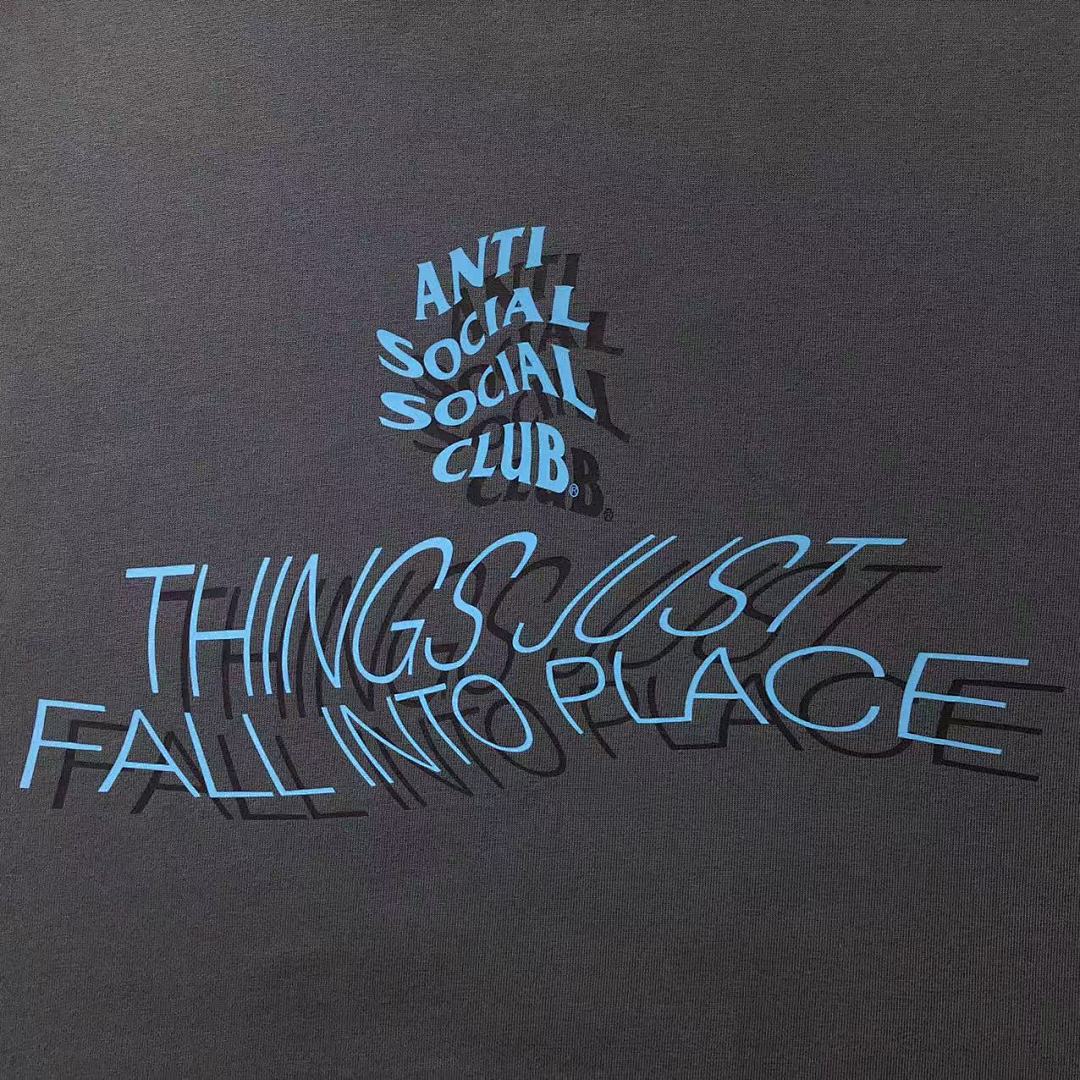 ANTI
SOCIAL
SOCIAL
CLUB®
THINGS JUST
FALL INTO PLACE